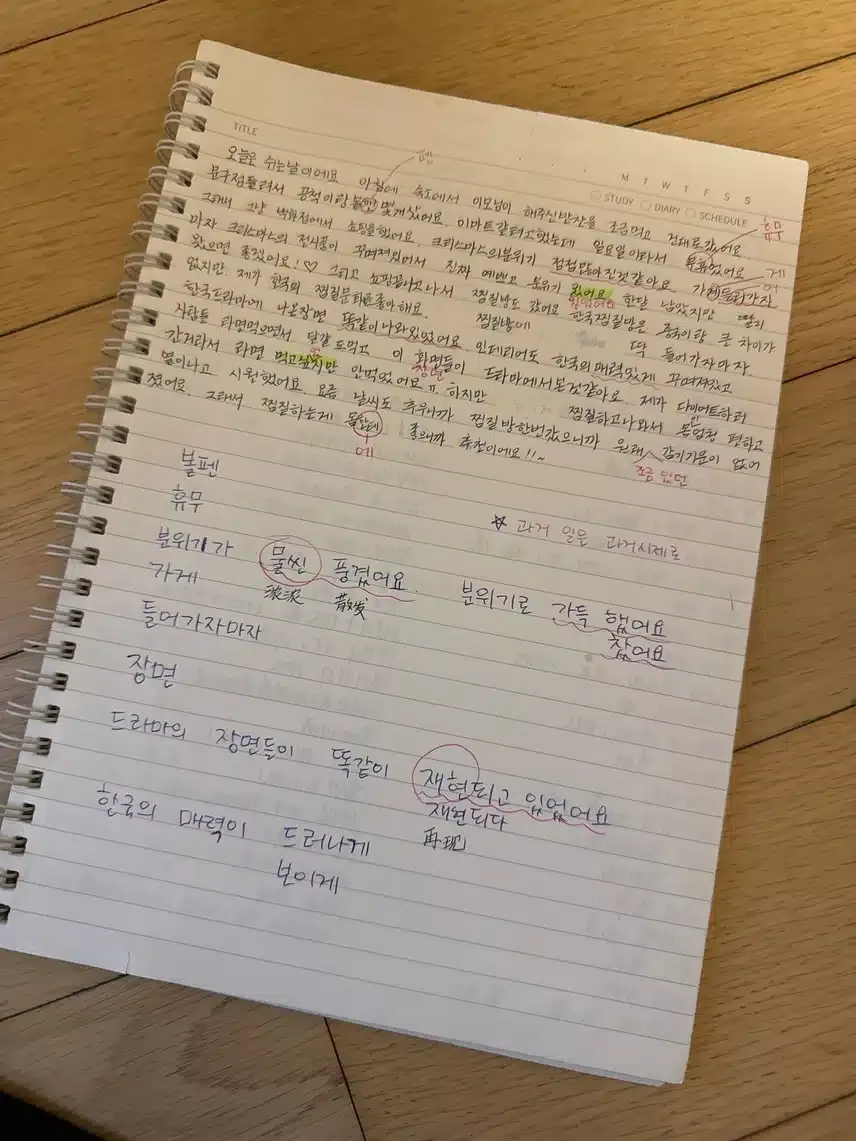 TITLE
M T W T F S S
STUDY DIARY SCHEDULE
펜
오늘은 쉬는날이에요 아침에 숙소에서 이모님이 해주신반찬을 조금먹고 건대로갔어요
휴무
문구점들려서 공책이랑 몇개샀어요. 이마트갈려고했는데 일요일이라서
그래서 그냥 백화점에서 쇼핑을했어요. 크리스마스의분위기 점점많아진것같아요. 가
게
마자 크리스마스의 전시품이 꾸며져있어서 진짜 예쁘고 분위기 있어요 한달 남았지만 빨리
어
왔으면 좋겠어요!♡ 그리고 쇼핑끝나고나서 찜질방도 갔어요 한국찜질방은 중국이랑 큰 차이가
있었어요
없지만 제가 한국의 찜질문화를좋아해요. 찜질방에 딱 들어가자마자
한국드라마에 나온장면 똑같이나와있었어요. 인테리어도 한국의매력있게 꾸며져있고
사람들 라면먹으면서 달걀도먹고 이 화면들이 드라마에서본것같아요. 제가 다이어트하러
장면
간거라서 라면 먹고싶지만 안먹었어요ㅠ 하지만 찜질하고나와서 몸엄청 편하고
열이나고 시원했어요. 요즘 날씨도 추우니까 찜질방한번갔으니까 원래 감기기운이 없어
조금 있던
졌어요. 그래서 찜질하는게 몸한데 좋으니까 추천이에요!!~
에
볼펜
휴무
☆ 과거 일은 과거시제로
분위기가 물씬 풍겼어요. 분위기로 가득 했어요
찼어요
浓浓 散发
가게
들어가자마자
장면
드라마의 장면들이 똑같이 재현되고 있었어요
재현되다
再现
한국의 매력이 드러나게
보이게